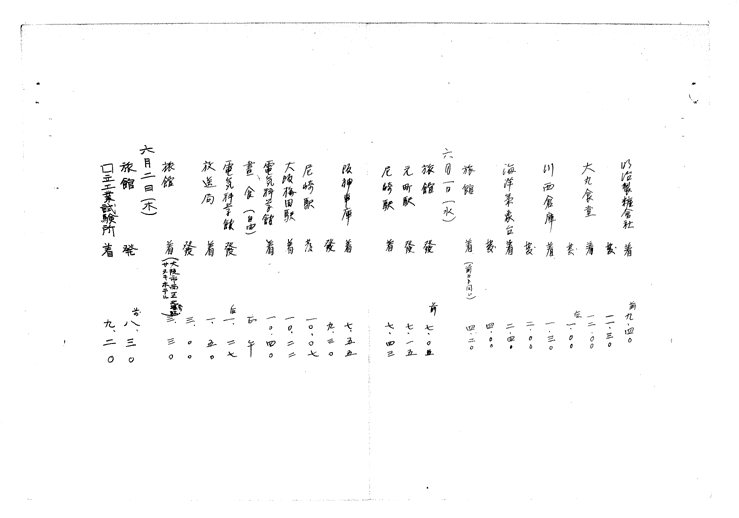 明治製糖会社 着 前九.四〇
発 一一.三〇
大丸食堂 着 一二.〇〇
発 后一.〇〇
川西倉庫 着 一.三〇
発 二.〇〇
海洋気象台 着 二.四〇
発 四.〇〇
旅館 着 (前日ト同ジ) 四.二〇
六月一日(水)
旅館 發 前七.〇五
元町駅 發 七.一五
尼崎駅 着 七.四三
阪神車庫 着 七.五五
發 九.三〇
尼崎駅 发 一〇.〇七
大阪梅田駅 着 一〇.二二
電気科学館 着 一〇.四〇
昼食(自由) 正午
電気科学館 發 后一.二七
放送局 着 一.五〇
發 三.〇〇
旅館 着 (大阪市南区 ホテル) 三.三〇
六月二日(木)
旅館 発 前八.三〇
□立工業試験所 着 九.二〇